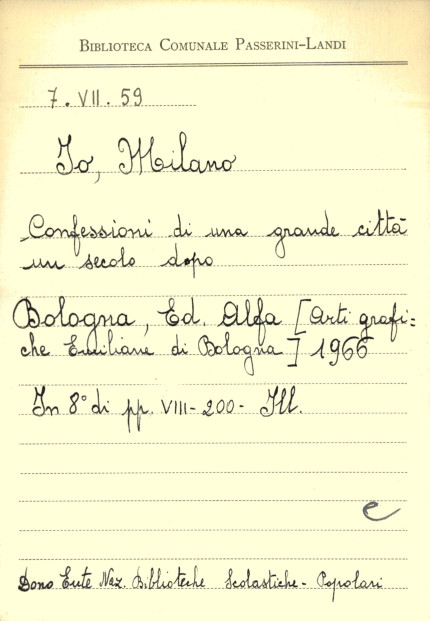 BIBLIOTECA COMUNALE PASSERINI-LANDI
7. VII. 59
Io, Milano
Confessioni di una grande città
un secolo dopo
Bologna, Ed. Alfa [Arti grafi=
che Emiliane di Bologna] 1966
In 8° di pp. VIII-200- Ill.
e
Dono Ente Naz. Biblioteche Scolastiche-Popolari